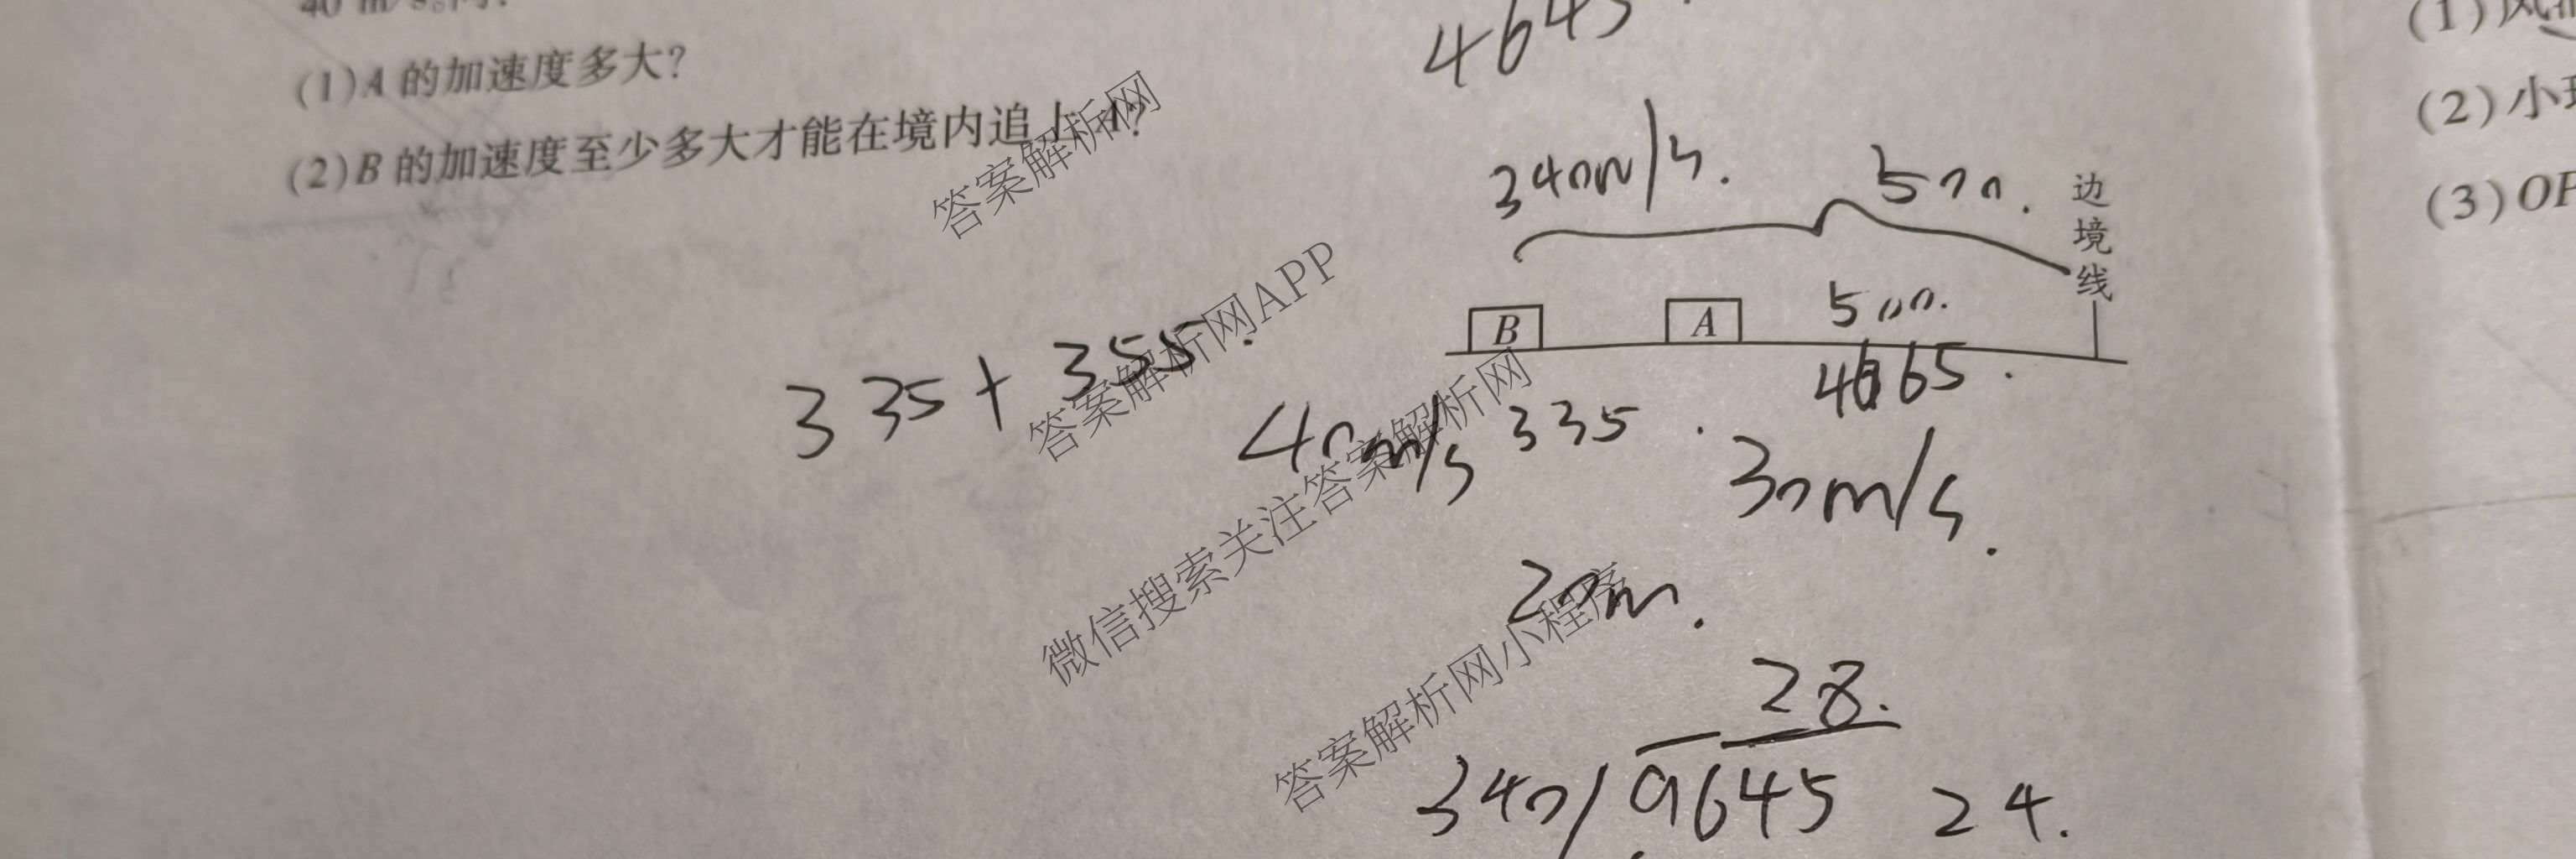 40 m/s。问:
(1)A 的加速度多大?
(2)B 的加速度至少多大才能在境内追上 A?
4645
340m/s.
500.
边境线
B
A
500.
4665.
335+355.
40m/s
335.
30m/s.
20m.
28.
340/9645
24.
(1)风
(2)小
(3)OP
答案解析网
答案解析网APP
微信搜索关注答案解析网
答案解析网小程序